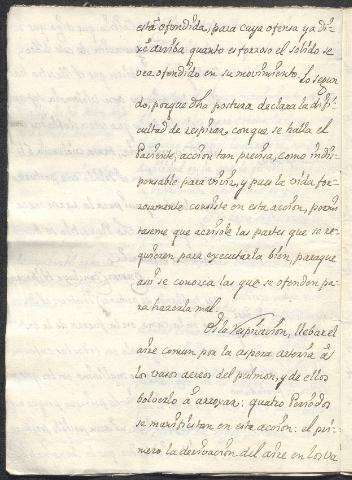 está ofendida, para cuya ofensa ya di-
xe arriba quanto es forzoso el solido se
vea ofendido en su movimiento. Lo segun
do, porque dha postura declara la difi-
cultad de respirar, con que se halla el
Paciente, accion tan precisa, como indis-
pensable para vivir, y pues la vida for-
zosamente consiste en esta accion, permi
taseme que acensole las partes que se re-
quieren para executarla bien, paraque
assi se conozca las que se ofenden pa-
ra hazerla mal.
Es la Respiracion, llebar el
aire comun por la aspera arteria à
los vasos aereos del pulmon, y de ellos
bolverlo à arrojar: quatro Periodos
se manifiestan en esta accion: el pri-
mero la derivacion del aire en los va